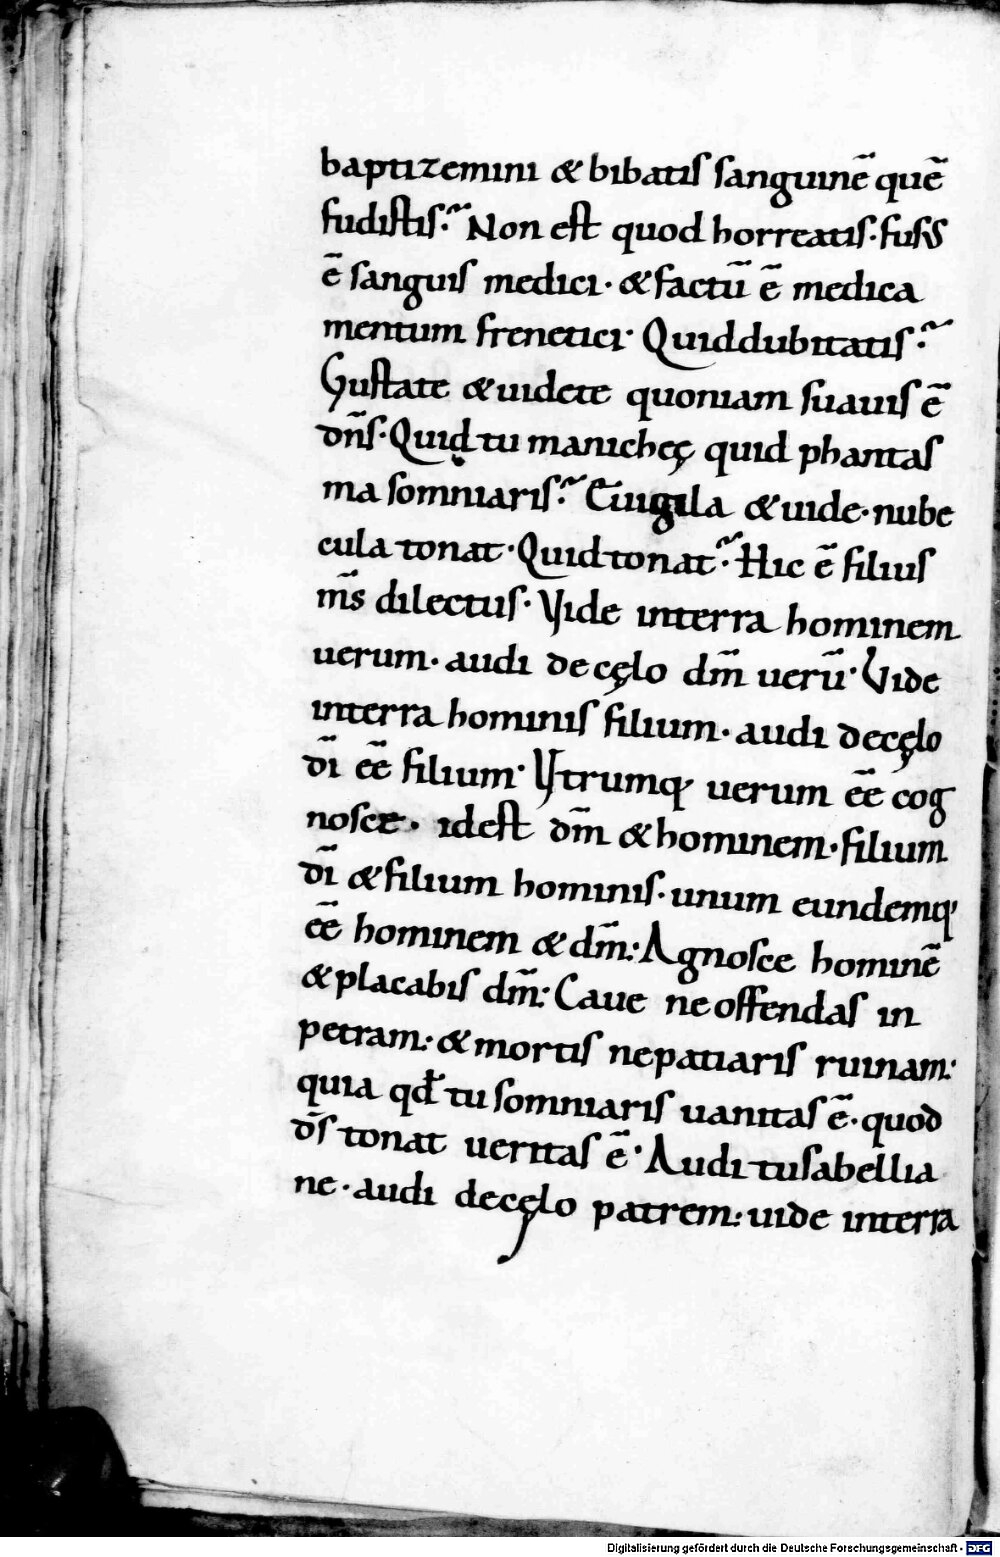 baptizemini & bibatis sanguinē quē
fudistis. Non est quod horreatis. fusus
ē sanguis medici. & factū ē medica
mentum frenetici. Quid dubitatis.
Gustate & uidete quoniam suauis ē
dn̄s. Quid tu manicheę quid phantas
ma somniaris. Euigila & uide. nube
cula tonat. Quid tonat. Hic ē filius
m̄s dilectus. Vide interra hominem
uerum. audi de cęlo dm̄ uerū. Vide
interra hominis filium. audi decęlo
dī eē filium. Vtrumq; uerum eē cog
nosce. idest dm̄ & hominem. filium
dī & filium hominis. unum eundemq;
eē hominem & dm̄: Agnosce hominē
& placabis dm̄: Caue ne offendas in
petram: & mortis ne patiaris ruinam:
quia qd̄ tu somniaris uanitas ē. quod
d̄s tonat ueritas ē. Audi tu sabellia
ne. audi decęlo patrem: uide interra
Digitalisierung gefördert durch die Deutsche Forschungsgemeinschaft - DFG